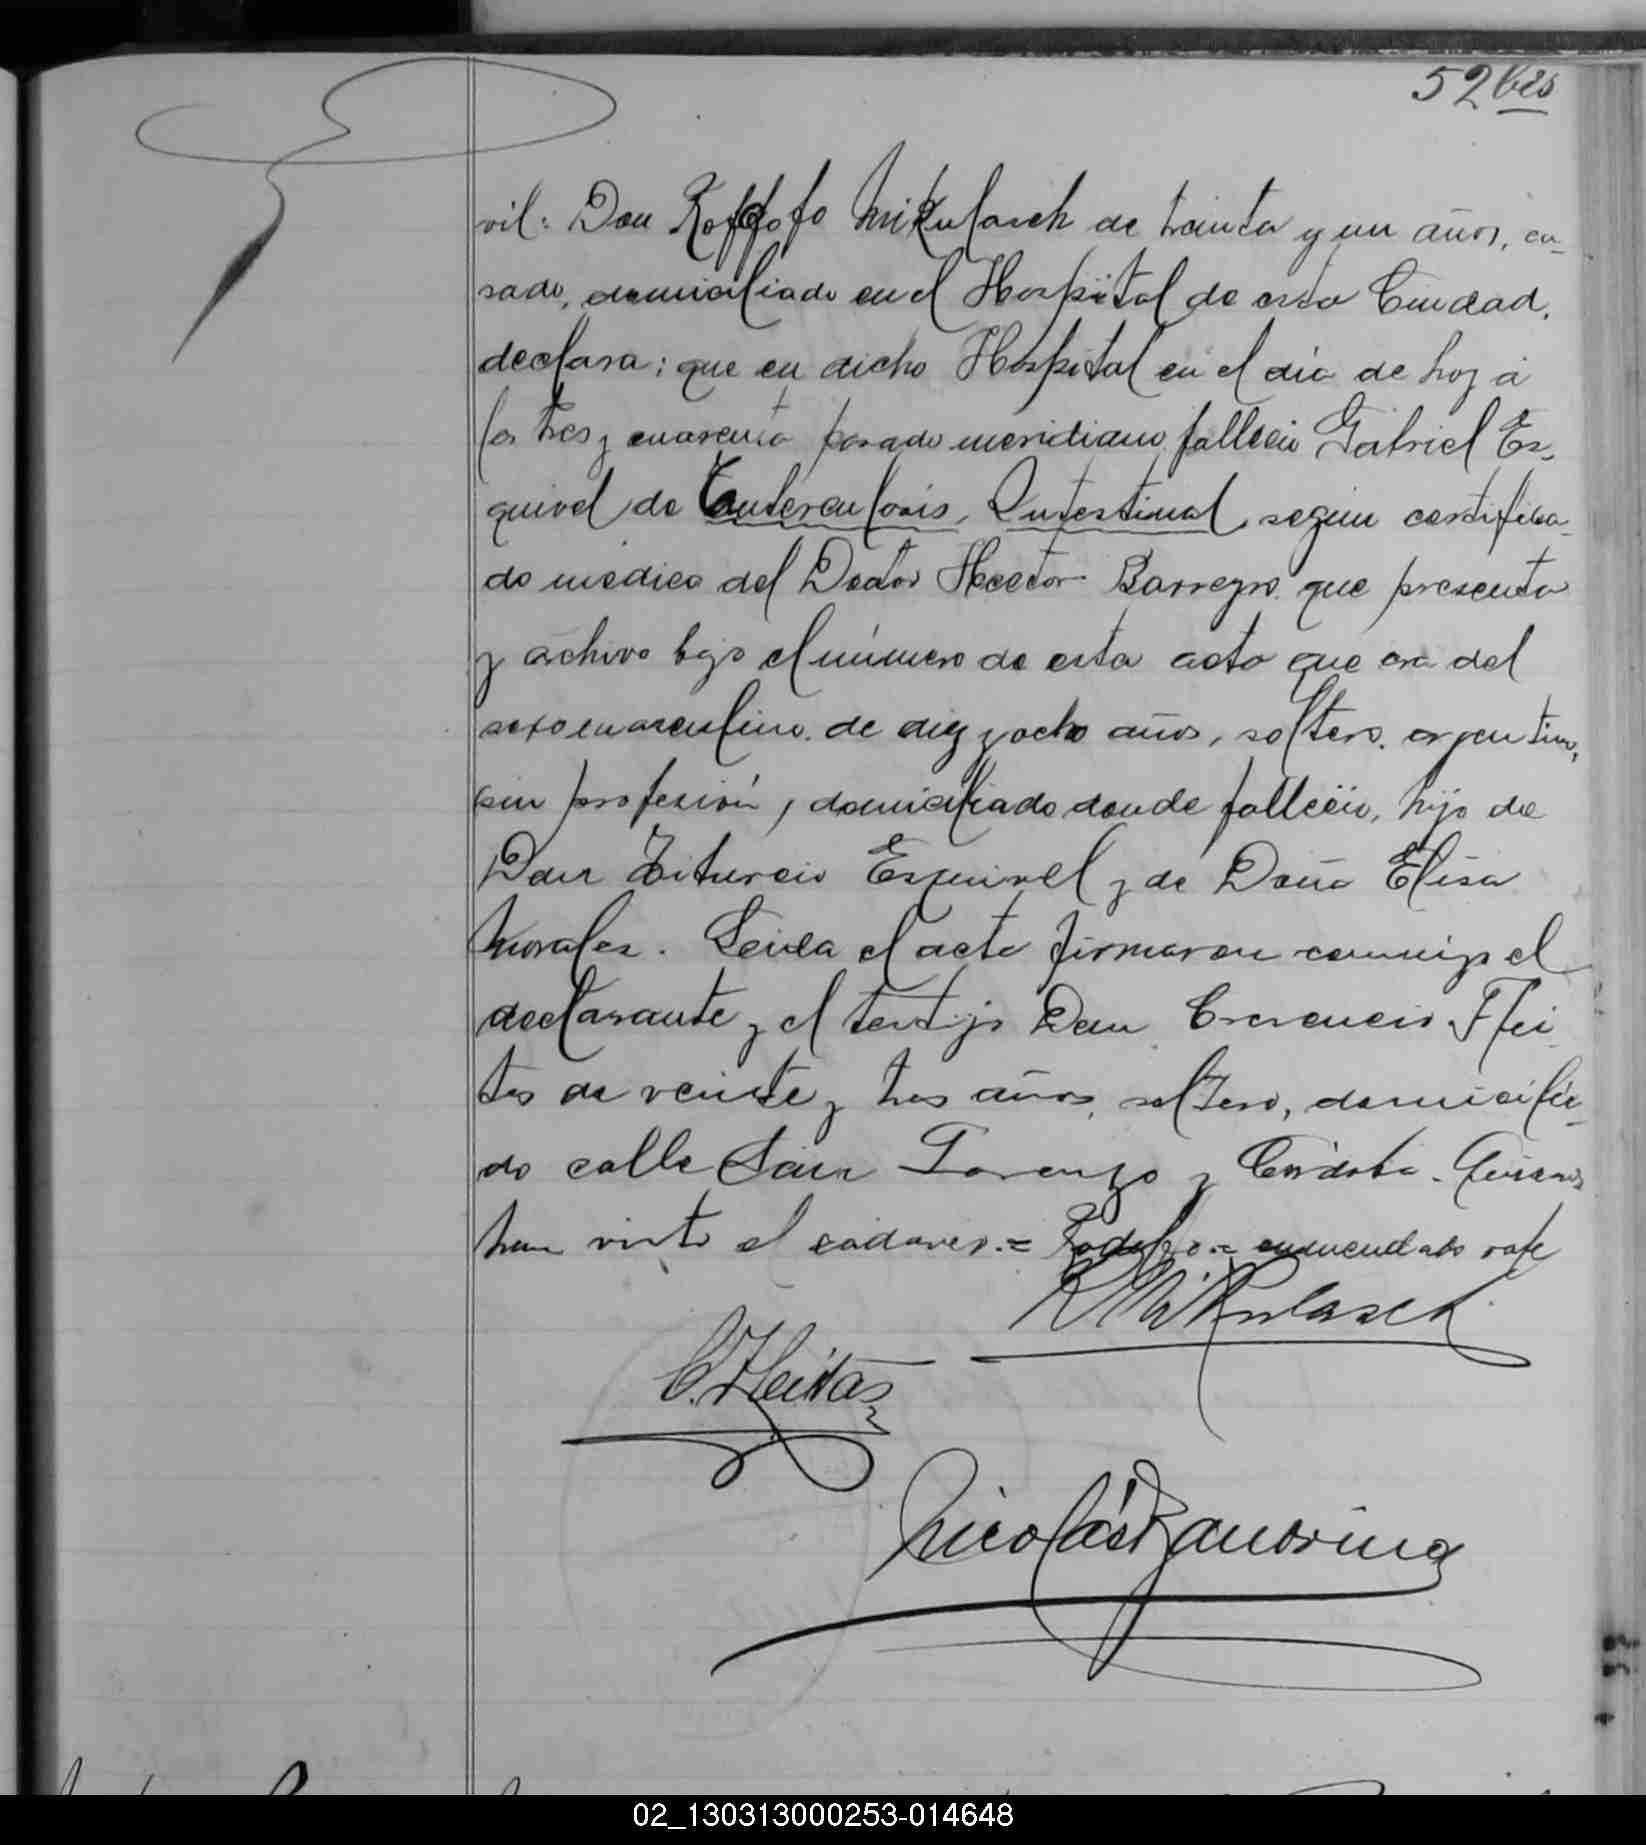 52 bis
vil: Don Rodolfo Mikulasch de treinta y un años, ca-
sado, domiciliado en el Hospital de esta Ciudad,
declara; que en dicho Hospital en el día de hoy á
las tres y cuarenta pasado meridiano falleció Gabriel Es-
quivel de Tuberculosis Intestinal, segun certifica-
do medico del Doctor Hector Barreyro que presenta
y archivo bajo el número de esta acta que era del
sexo masculino de diez y ocho años, soltero, argentino,
sin profesión, domiciliado donde falleció, hijo de
Don Esquivel y de Doña Elisa
Morales. Leida el acta firmaron conmigo el
declarante y el testigo Don Cresencio Flei
tas de veinte y tres años, soltero, domicilia-
do calle San Lorenzo y Córdoba. Quienes
han visto el cadaver.= Rodolfo.= enmendado vale
R Mikulasch
C. Fleitas
Nicolás
02_130313000253-014648